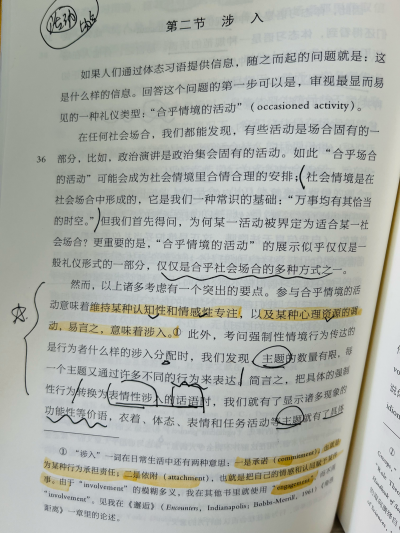 第二节 涉 入
如果人们通过体态习语提供信息，随之而起的问题就是：这
是什么样的信息。回答这个问题的第一步可以是，审视最显而易
见的一种礼仪类型：“合乎情境的活动”（occasioned activity）。
在任何社会场合，我们都能发现，有些活动是场合固有的一
36 部分，比如，政治演讲是政治集会固有的活动。如此“合乎场合
的活动”可能会成为社会情境里合情合理的安排；社会情境是在
社会场合中形成的，它是我们一种常识的基础：“万事均有其恰当
的时空。”但我们首先得问，为何某一活动被界定为适合某一社
会场合？更重要的是，“合乎情境的活动”的展示似乎仅仅是一
般礼仪形式的一部分，仅仅是合乎社会场合的多种方式之一。
然而，以上诸多考虑有一个突出的要点。参与合乎情境的活
动意味着维持某种认知性和情感性专注，以及某种心理资源的调
动，易言之，意味着涉入。① 此外，考问强制性情境行为传达的
是行为者什么样的涉入分配时，我们发现，主题的数量有限，每
一个主题又通过许多不同的行为来表达。简言之，把具体的强制
性行为转换为表情性涉入的话语时，我们就有了显示诸多现象的
功能性等价语，衣着、体态、表情和任务活动等主题就有了具体
① “涉入”一词在日常生活中还有两种意思：一是承诺（commitment），
为某种行为承担责任；二是依附（attachment），也就是把自己的情感和认同
事。由于“involvement”的模糊多义，我在其他书里就使用“engagement”
“involvement”。见我在《邂逅》（Encounters, Indianapolis: Bobbs-Merrill, 1961）
距离》一章里的论述。